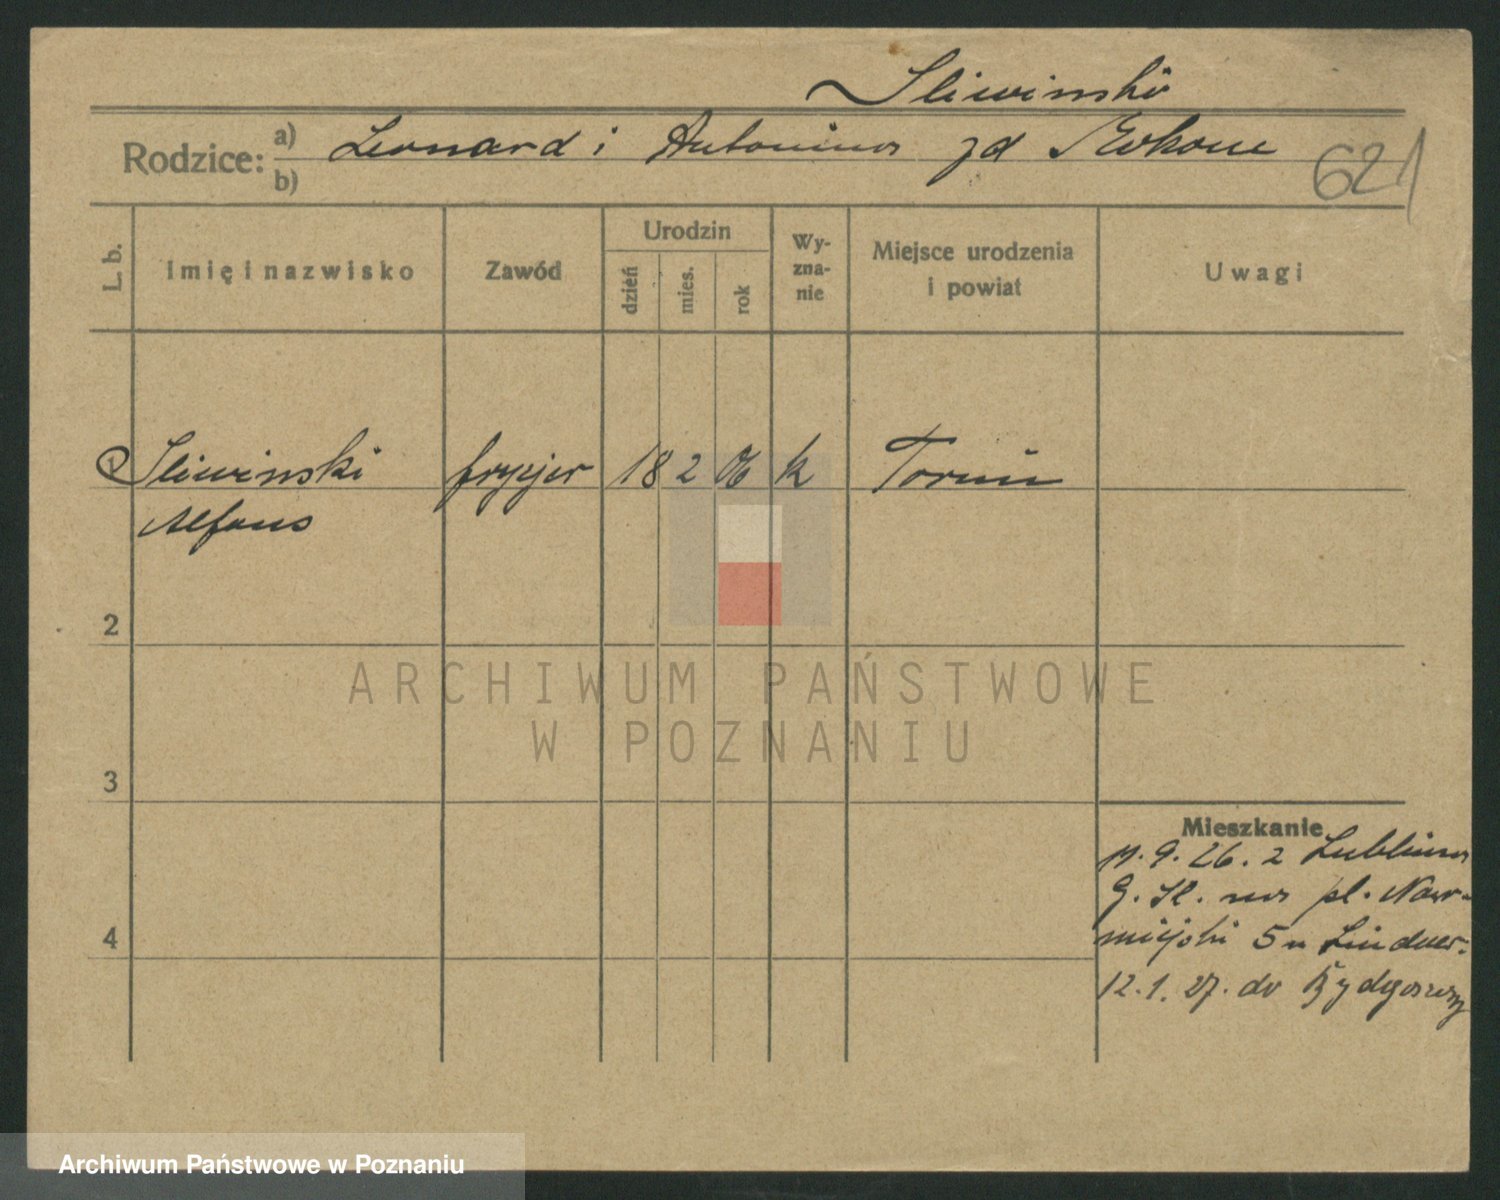 Sliwinski
Rodzice: a) Leonard i Antonina zd
b)
621
L. b. Imię i nazwisko Zawód Urodzin dzień mies. rok Wy-zna-nie Miejsce urodzenia i powiat Uwagi
1 Sliwinski fryzjer 18 2 06 k Torun
Alfons
2
3
4
Mieszkanie
9. 26. z Lublina
G. Sl. na pl. Nowo-
miejski 5 u Lindner.
12.1.27. do Bydgoszczy
ARCHIWUM PAŃSTWOWE
W POZNANIU
Archiwum Państwowe w Poznaniu